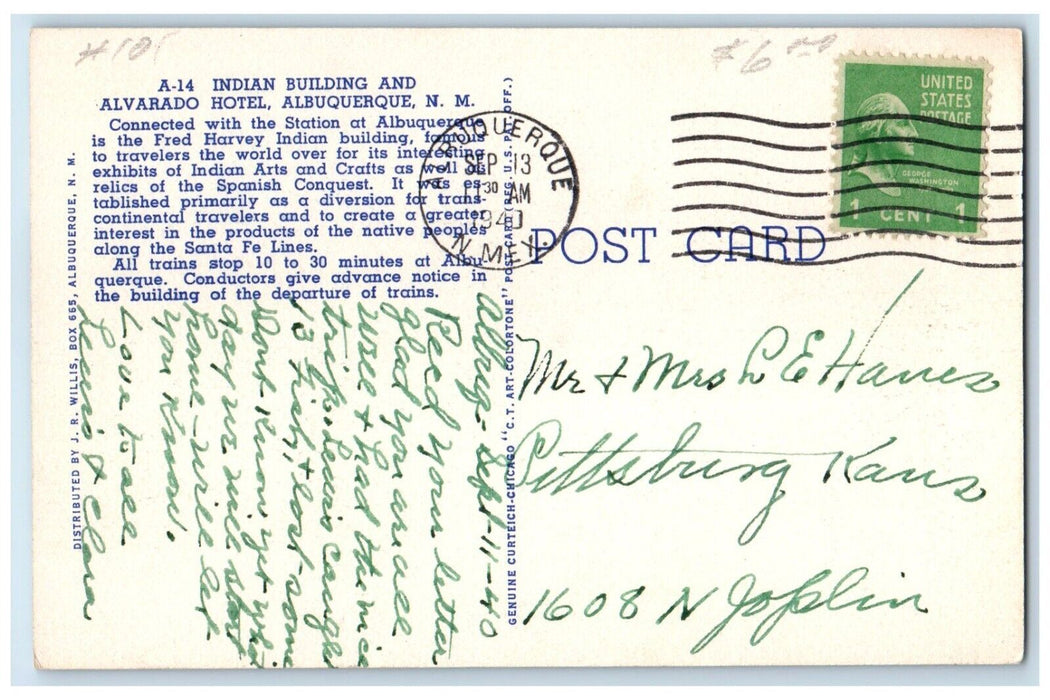 #101
$6.00
A-14 INDIAN BUILDING AND
ALVARADO HOTEL, ALBUQUERQUE, N. M.
Connected with the Station at Albuquerque
is the Fred Harvey Indian building, famous
to travelers the world over for its interesting
exhibits of Indian Arts and Crafts as well as
relics of the Spanish Conquest. It was es-
tablished primarily as a diversion for trans-
continental travelers and to create a greater
interest in the products of the native peoples
along the Santa Fe Lines.
All trains stop 10 to 30 minutes at Albu-
querque. Conductors give advance notice in
the building of the departure of trains.
DISTRIBUTED BY J. R. WILLIS, BOX 665, ALBUQUERQUE, N. M.
GENUINE CURTEICH-CHICAGO "C. T. ART-COLORTONE" POST CARD (REG. U.S. PAT. OFF.)
ALBUQUERQUE
SEP 13
11 30 AM
1940
N. MEX.
UNITED
STATES
POSTAGE
GEORGE
WASHINGTON
1 CENT 1
POST CARD
Albuq- Sept-11-40
Recd your letter
glad you are all
well & had the nice
trip. Lewis caught
13 fish, & lost some
dont know yet what
day we will start
home - will let
you know.
Love to all
Lewis & Clara
Mr & Mrs L E Hanes
Pittsburg Kans
1608 N Joplin